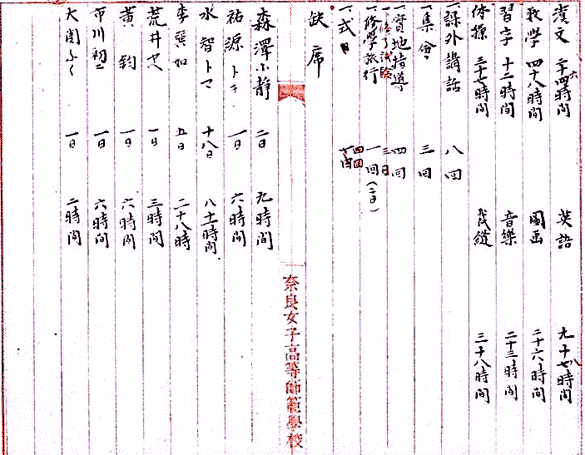 漢文 二十四時間 英語 九十七時間
数学 四十八時間 図画 二十六時間
習字 十二時間 音楽 二十三時間
体操 三十七時間 裁縫 三十八時間
一課外講話 八回
一集会 三回
一実地指導 四回
一修了試験 三日
一修学旅行 一回(二日)
一式日
欠席
森澤小静 二日 九時間
祐源トキ 一日 六時間
水智トマ 十八日 時間
李 五日 二十八時
荒井 一日 三時間
黄鈞 一日 六時間
市川初 一日 六時間
大関ふく 一日 二時間
奈良女子高等師範學校